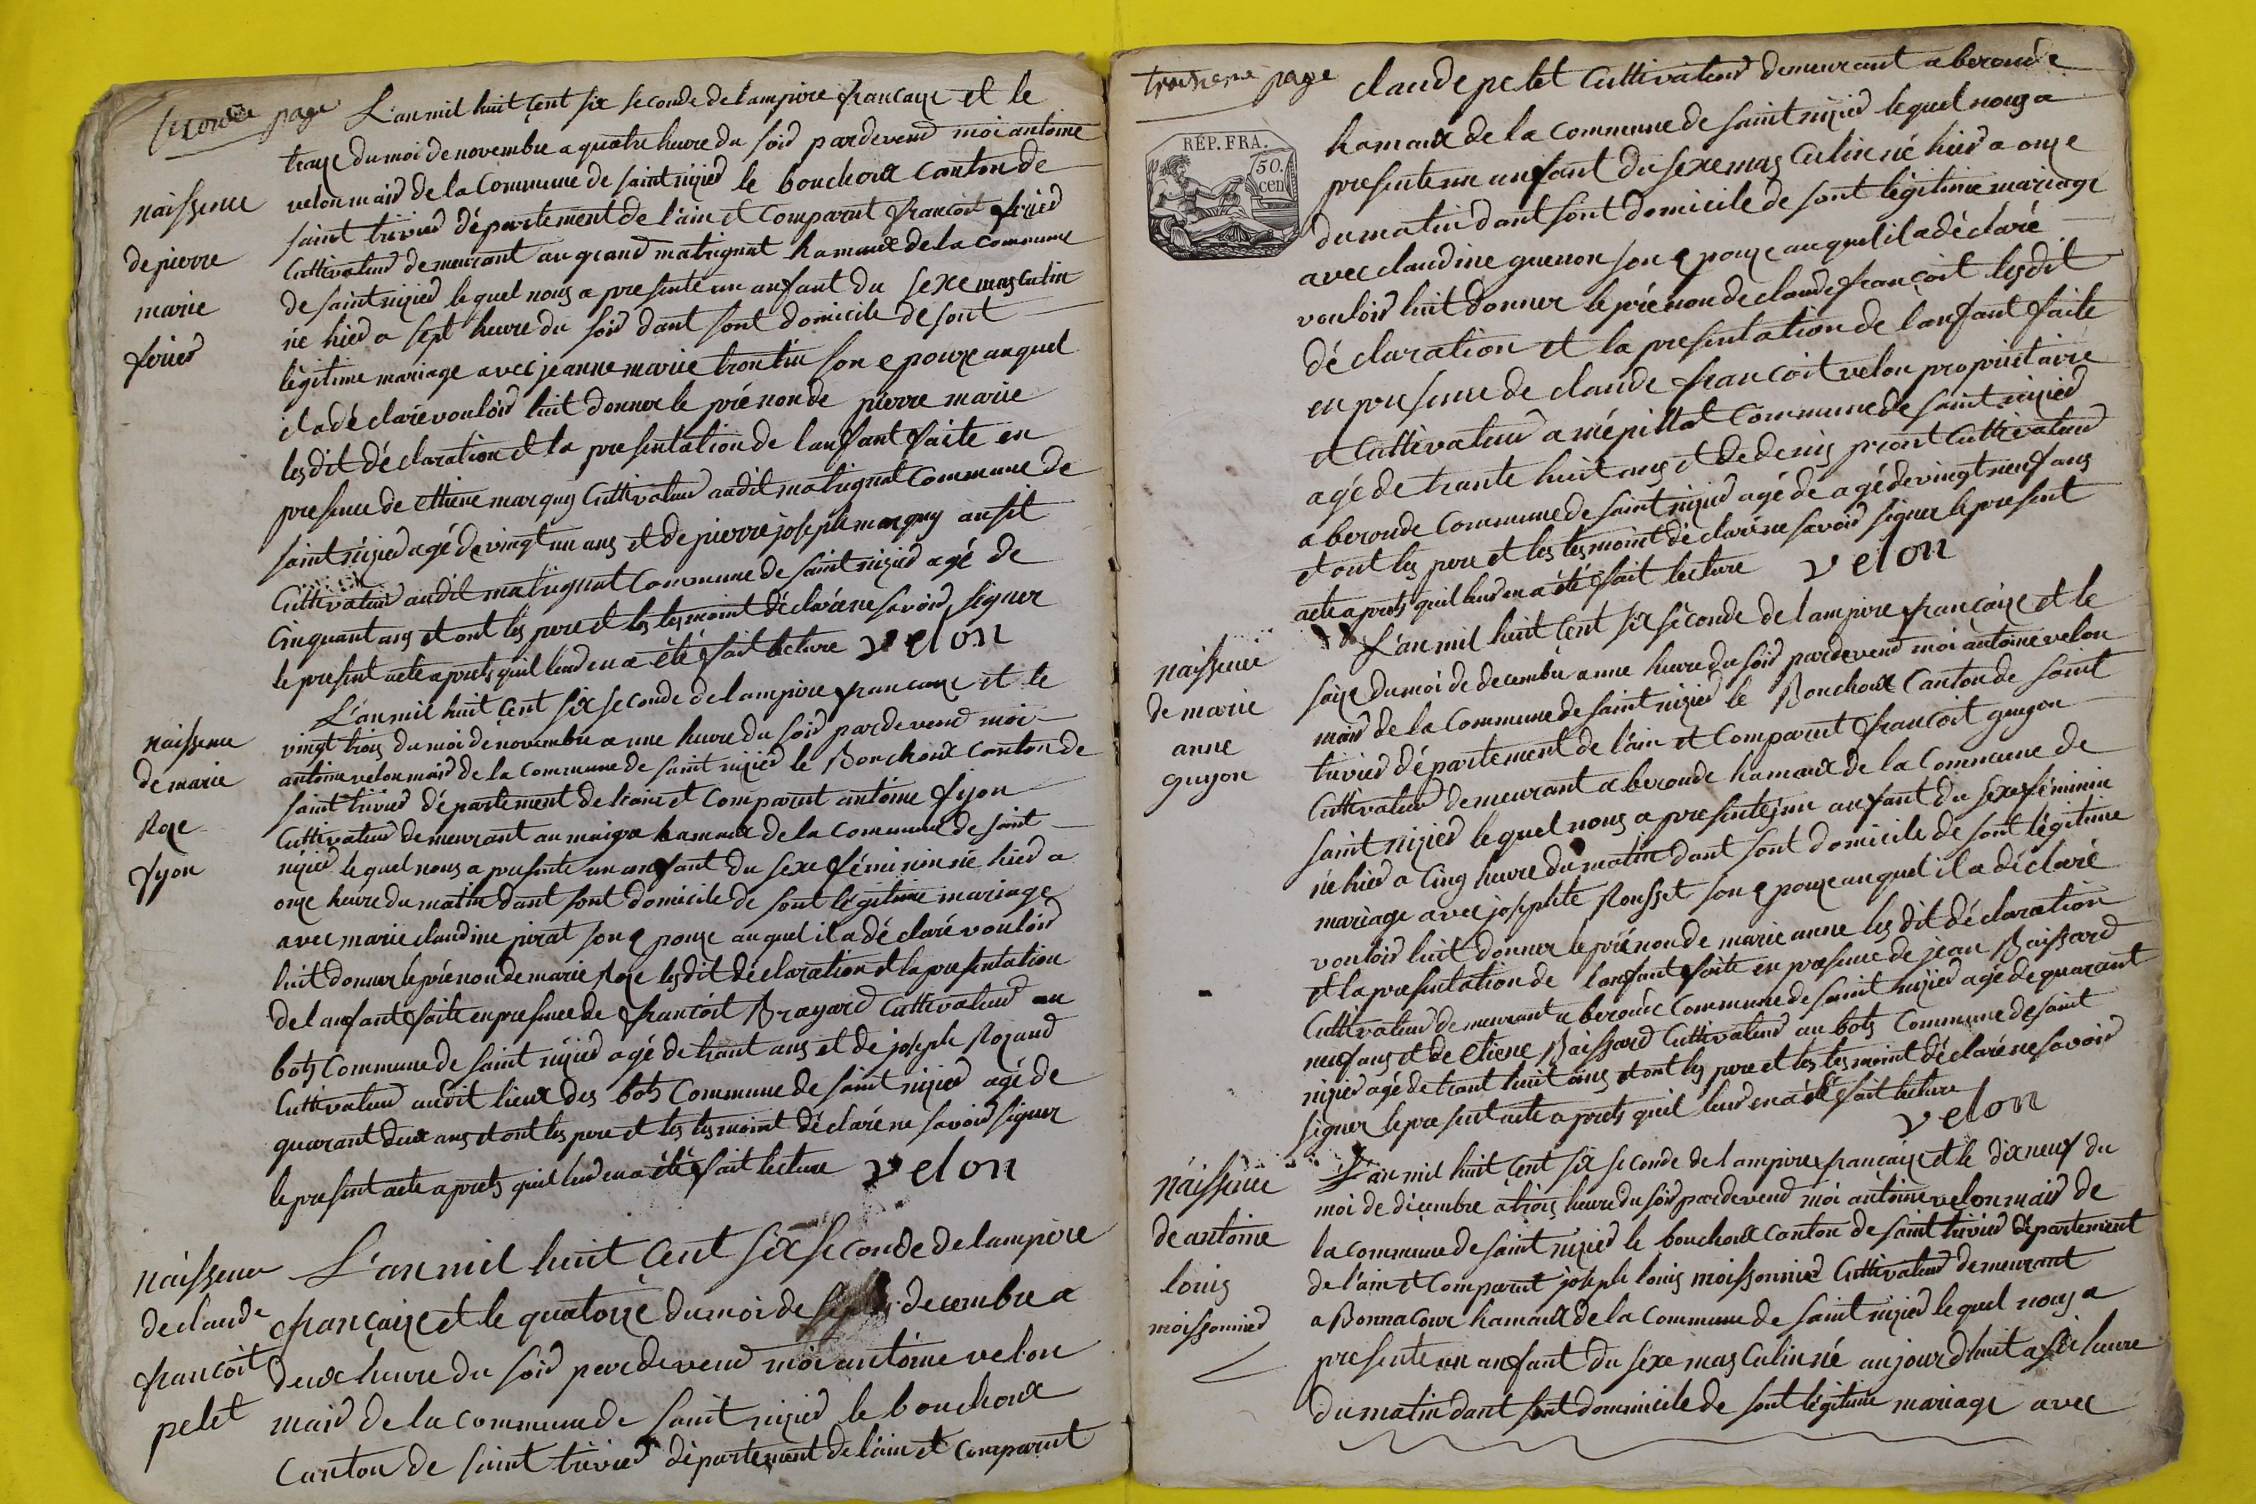 seconde page
L'an mil huit cent six seconde de lampire francaize et le
traize du moi de novembre a quatre heure du soir pardevend moi antoine
velon maid de la Commune de saint nizied le bouchoux Canton de
saint trivied département de l'ain et Comparut francoit feried
Cultivateur demeurant au grand matrignat hamaux de la Commune
de saint nizied lequel nous a presenté un anfant du sexe masculin
né hied a sept heure du soir dant sont domicile de sont
légitime mariage avec jeanne marie trontin son epouze auquel
il a déclaré vouloir luit donner le prénon de pierre marie
les dit déclaration et la presentation de lanfant faite en
presence de ettiene marquis Cultivateur audit matrignat Commune de
saint nizied agé de vingt un ans et de pierre joseph marquis ausit
Cultivateur audit matrignat Commune de saint nizied agé de
Cinquant ans et ont les pere et les tesmoint déclaré ne savoir signer
le present acte aprets quil leur en a été fait lecture velon
naissence
de pierre
marie
feried
L'an mil huit cent six seconde de lampire francaize et le
vingt trois du moi de novembre a une heure du soir pardevend moi
antoine velon maid de la Commune de saint nizied le Bouchoux Canton de
saint trivied département de l'ain et Comparut antoine fyon
Cultivateur demeurant au maigra hamaux de la Commune de saint
nizied lequel nous a presenté un anfant du sexe féminin né hied a
onze heure du matin dant sont domicile de sont légitime mariage
avec marie claudine pirat son epouze auquel il a déclaré vouloir
luit donner le prénon de marie Roze les dit déclaration et la presentation
de lanfant faite en presence de francoit Brayard Cultivateur au
bots Commune de saint nizied agé de trant ans et de joseph Rozand
Cultivateur audit lieux des bots Commune de saint nizied agé de
quarant deux ans et ont les pere et les tesmoint déclaré ne savoir signer
le present acte aprets quil leur en a été fait lecture velon
naissence
de marie
Roze
fyon
L'an mil huit Cent six seconde de lampire
francaize et le quatorze du moi de decembre a
deux heure du soir pardevend moi antoine velon
maid de la Commune de saint nizied le bouchoux
Canton de saint trivied département de l'ain et Comparut
naissence
de claude
francoit
pelet
troisieme page
claude pelet Cultivateur demeurant a beronde
hamaux de la Commune de saint nizied lequel nous a
presenté un anfant du sexe masculin né hied a onze
du matin dant sont domicile de sont légitime mariage
avec claudine guenon son epouze auquel il a déclaré
vouloir luit donner le prénon de claude francoit les dit
déclaration et la presentation de lanfant faite
en presence de claude francoit velon propriétaire
et Cultivateur a mépillat Commune de saint nizied
agé de trante huit ans et de denis pront Cultivateur
a beronde Commune de saint nizied agé de agé de vingt neuf ans
et ont les pere et les tesmoint déclaré ne savoir signer le present
acte aprets quil leur en a été fait lecture velon
RÉP. FRA.
50.
cen
L'an mil huit Cent six séconde de lampire francaize et le
saize du moi de decembre a une heure du soir pardevend moi antoine velon
maid de la Commune de saint nizied le Bouchoux Canton de saint
trivied département de l'ain et Comparut francoit guyon
Cultivateur demeurant a beronde hamaux de la Commune de
saint nizied lequel nous a presenté un anfant du sexe féminin
né hied a Cinq heure du matin dant sont domicile de sont légitime
mariage avec josephte Rousset son epouze auquel il a déclaré
vouloir luit donner le prénon de marie anne les dit déclaration
et la presentation de lanfant faite en presence de jean Baissard
Cultivateur demeurant a beronde Commune de saint nizied agé de quarant
neuf ans et de Etiene Baissard Cultivateur au bots Commune de saint
nizied agé de trant huit ans et ont les pere et les tesmoint déclaré ne savoir
signer le present acte aprets quil leur en a été fait lecture
velon
naissence
de marie
anne
guyon
L'an mil huit Cent six seconde de lampire francaize et le dix neuf du
moi de décembre a trois heure du soir pardevend moi antoine velon maid de
la Commune de saint nizied le bouchoux Canton de saint trivied département
de l'ain et Comparut joseph louis moissonnied Cultivateur demeurant
a Bonnacour hamaux de la Commune de saint nizied lequel nous a
presenté un anfant du sexe masculin né aujourdhuit a six heure
du matin dant sont domicile de sont légitime mariage avec
naissence
de antoine
louis
moissonnied